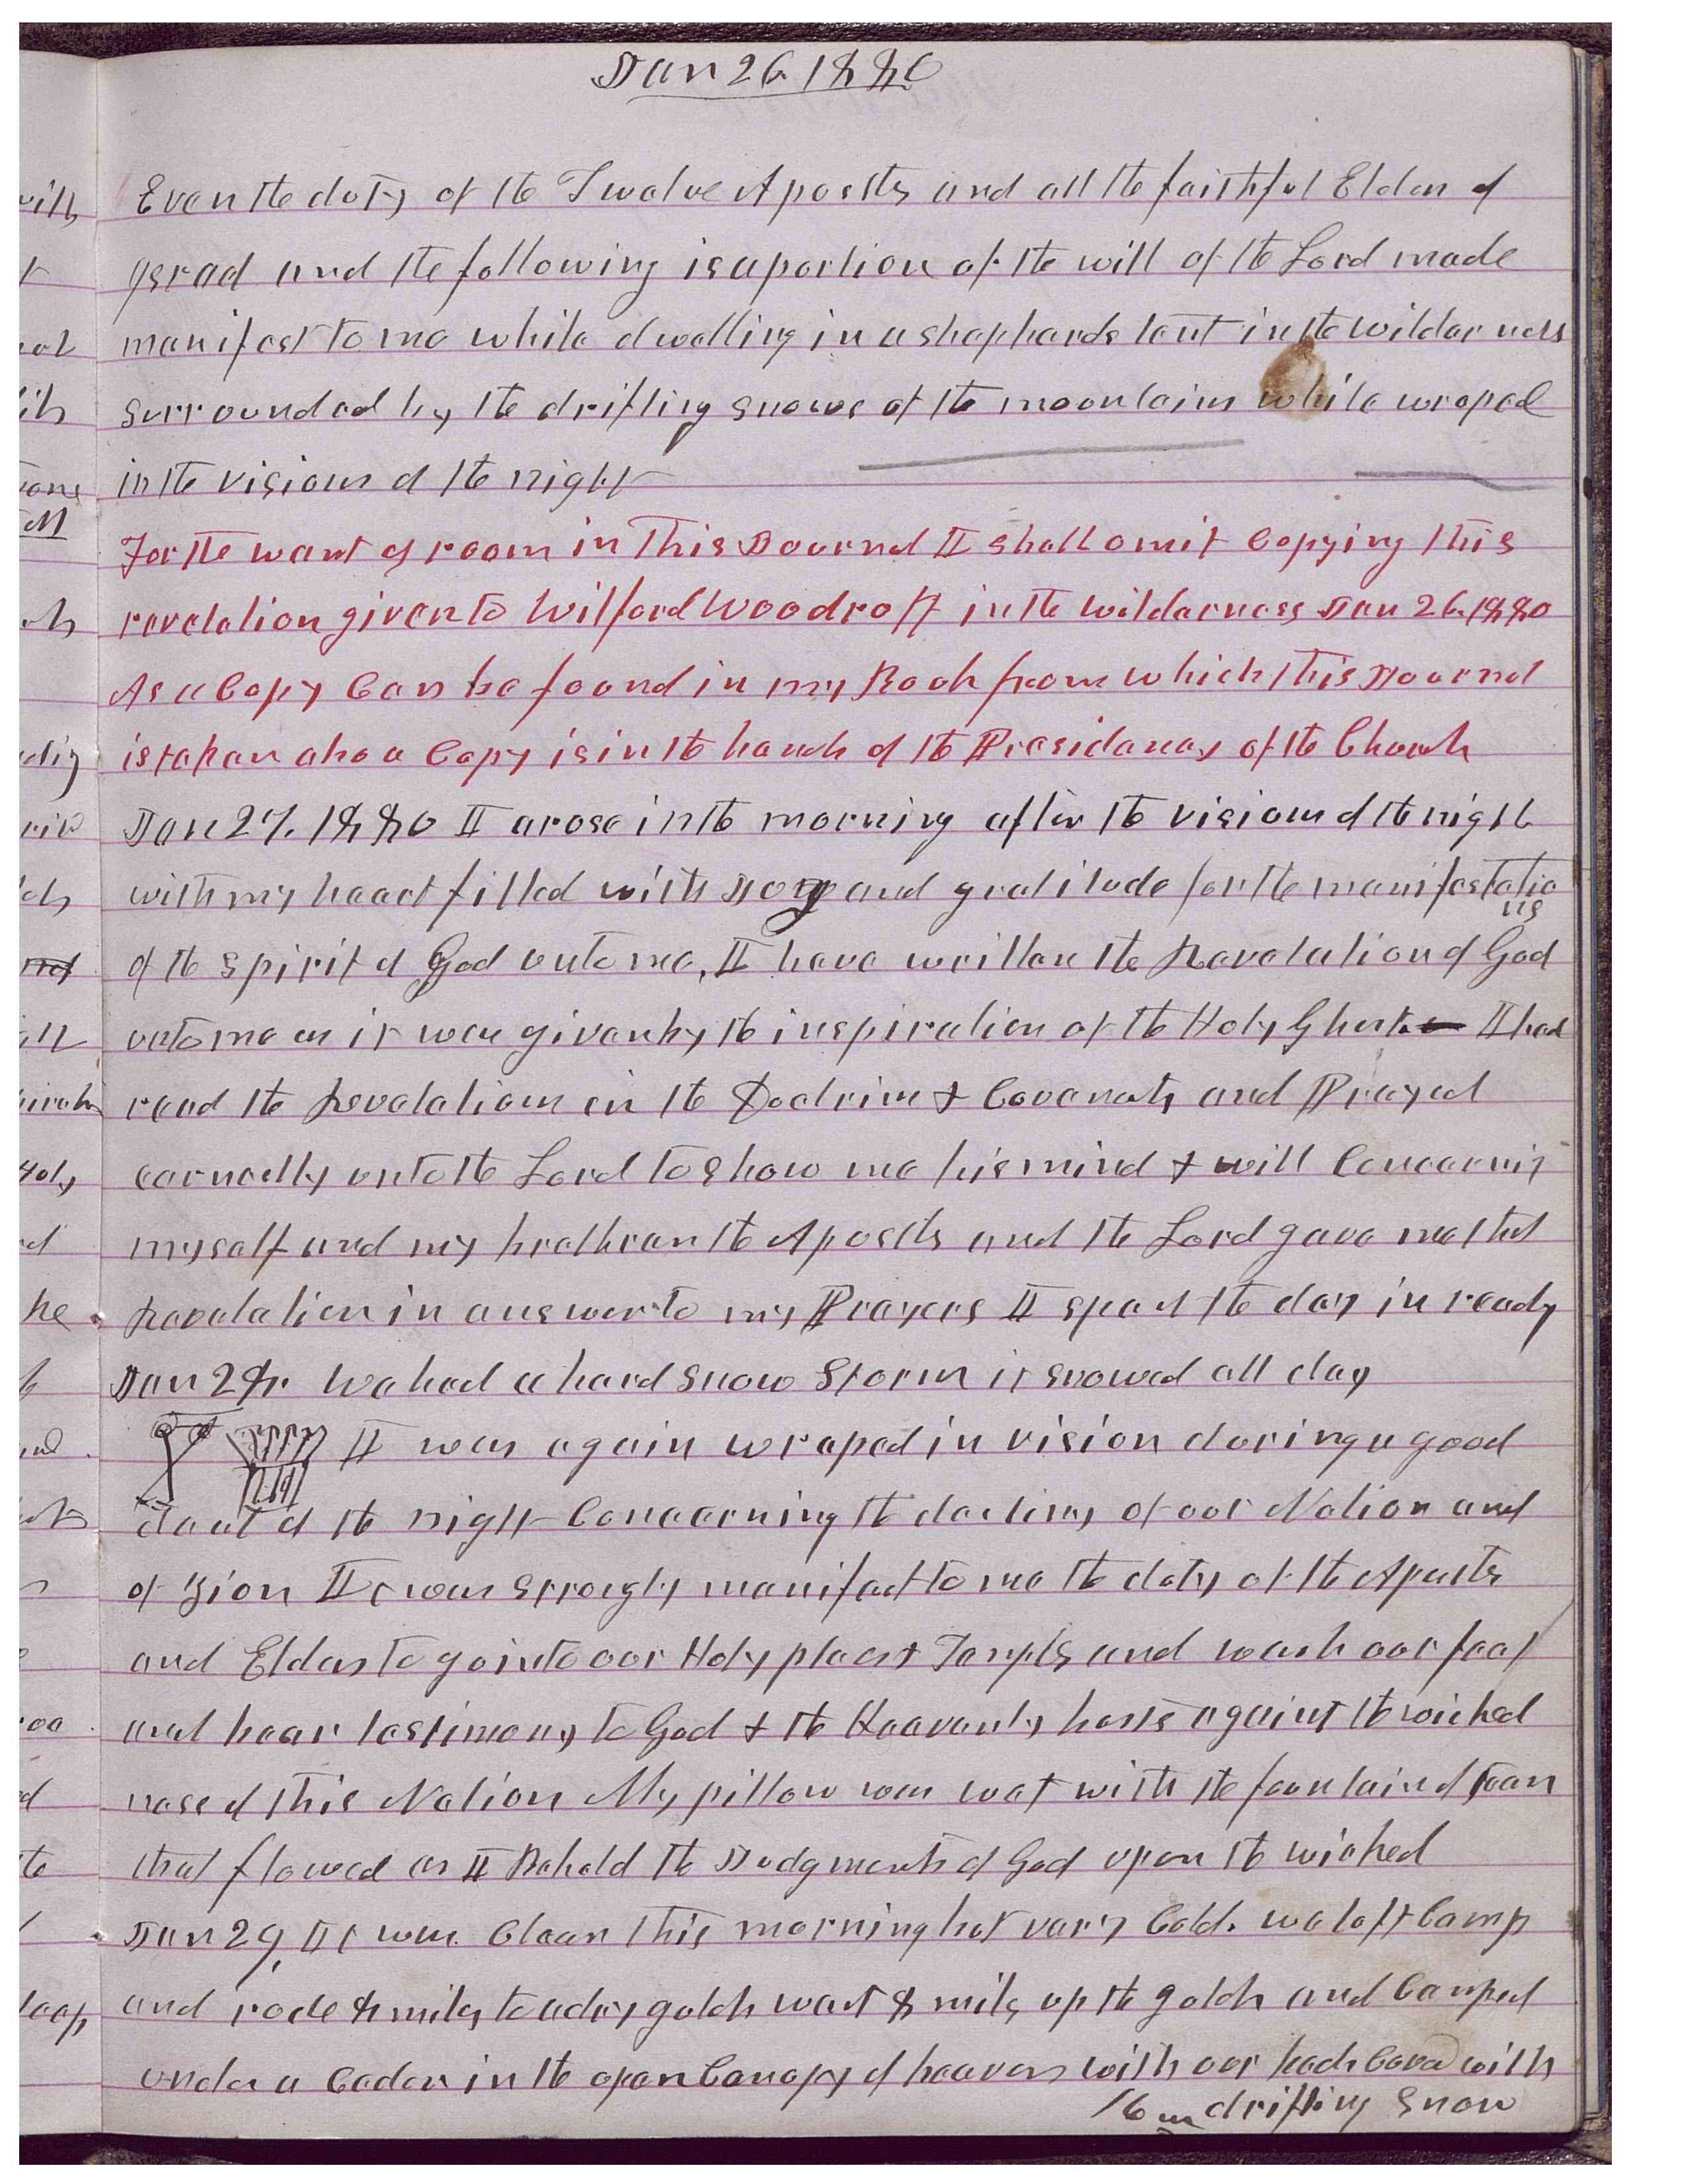 Jan 26 1880
Even the duty of the Twelve Apostls and all the faithful Elders of
Israel and the following is a portion of the will of the Lord made
manifest to me while dwelling in a shepherds tent in the wilderness
surrounded by the drifting snows of the mountains while wraped
in the visions of the night
For the want of room in this Journal I shall omit Copying this
revelation given to Wilford Woodruff in the wilderness Jan 26 1880
As a Copy Can be found in my Book from which this Journal
is taken also a Copy is in the hands of the Presidency of the Church
Jan 27. 1880 I arose in the morning after the visions of the night
with my heart filled with Joy and gratitude for the manifestatio
ns
of the spirit of God unto me, I have written the Revelation of God
unto me as it was given by the inspiration of the Holy Ghost. I had
read the Revelations in the Doctrine & Covenants and Prayed
earnestly unto the Lord to show me his mind & will Concernig
myself and my brethren the Apostls and the Lord gave me that
Revelation in answer to my Prayers I spent the day in readg
Jan 28. We had a hard snow Storm it snowed all day
I was again wraped in vision during a good
deal of the night Concerning the destiny of our Nation and
of Zion It was strongly manifest to me the duty of the Apostls
and Elders to go into our Holy places & Temples and wash our feet
and bear testimony to God & the Heavenly hosts against the wicked
ness of this Nation My pillow was wet with the fountain of tears
that flowed as I Beheld the Judgments of God upon the wicked
Jan 29, It was Clear this morning but very Cold. we left Camp
and rode 8 miles to a dry gulch went 8 mils up the gulch and Camped
under a Ceder in the open Canopy of heaven with our beds Coverd with
drifting snow
16 m